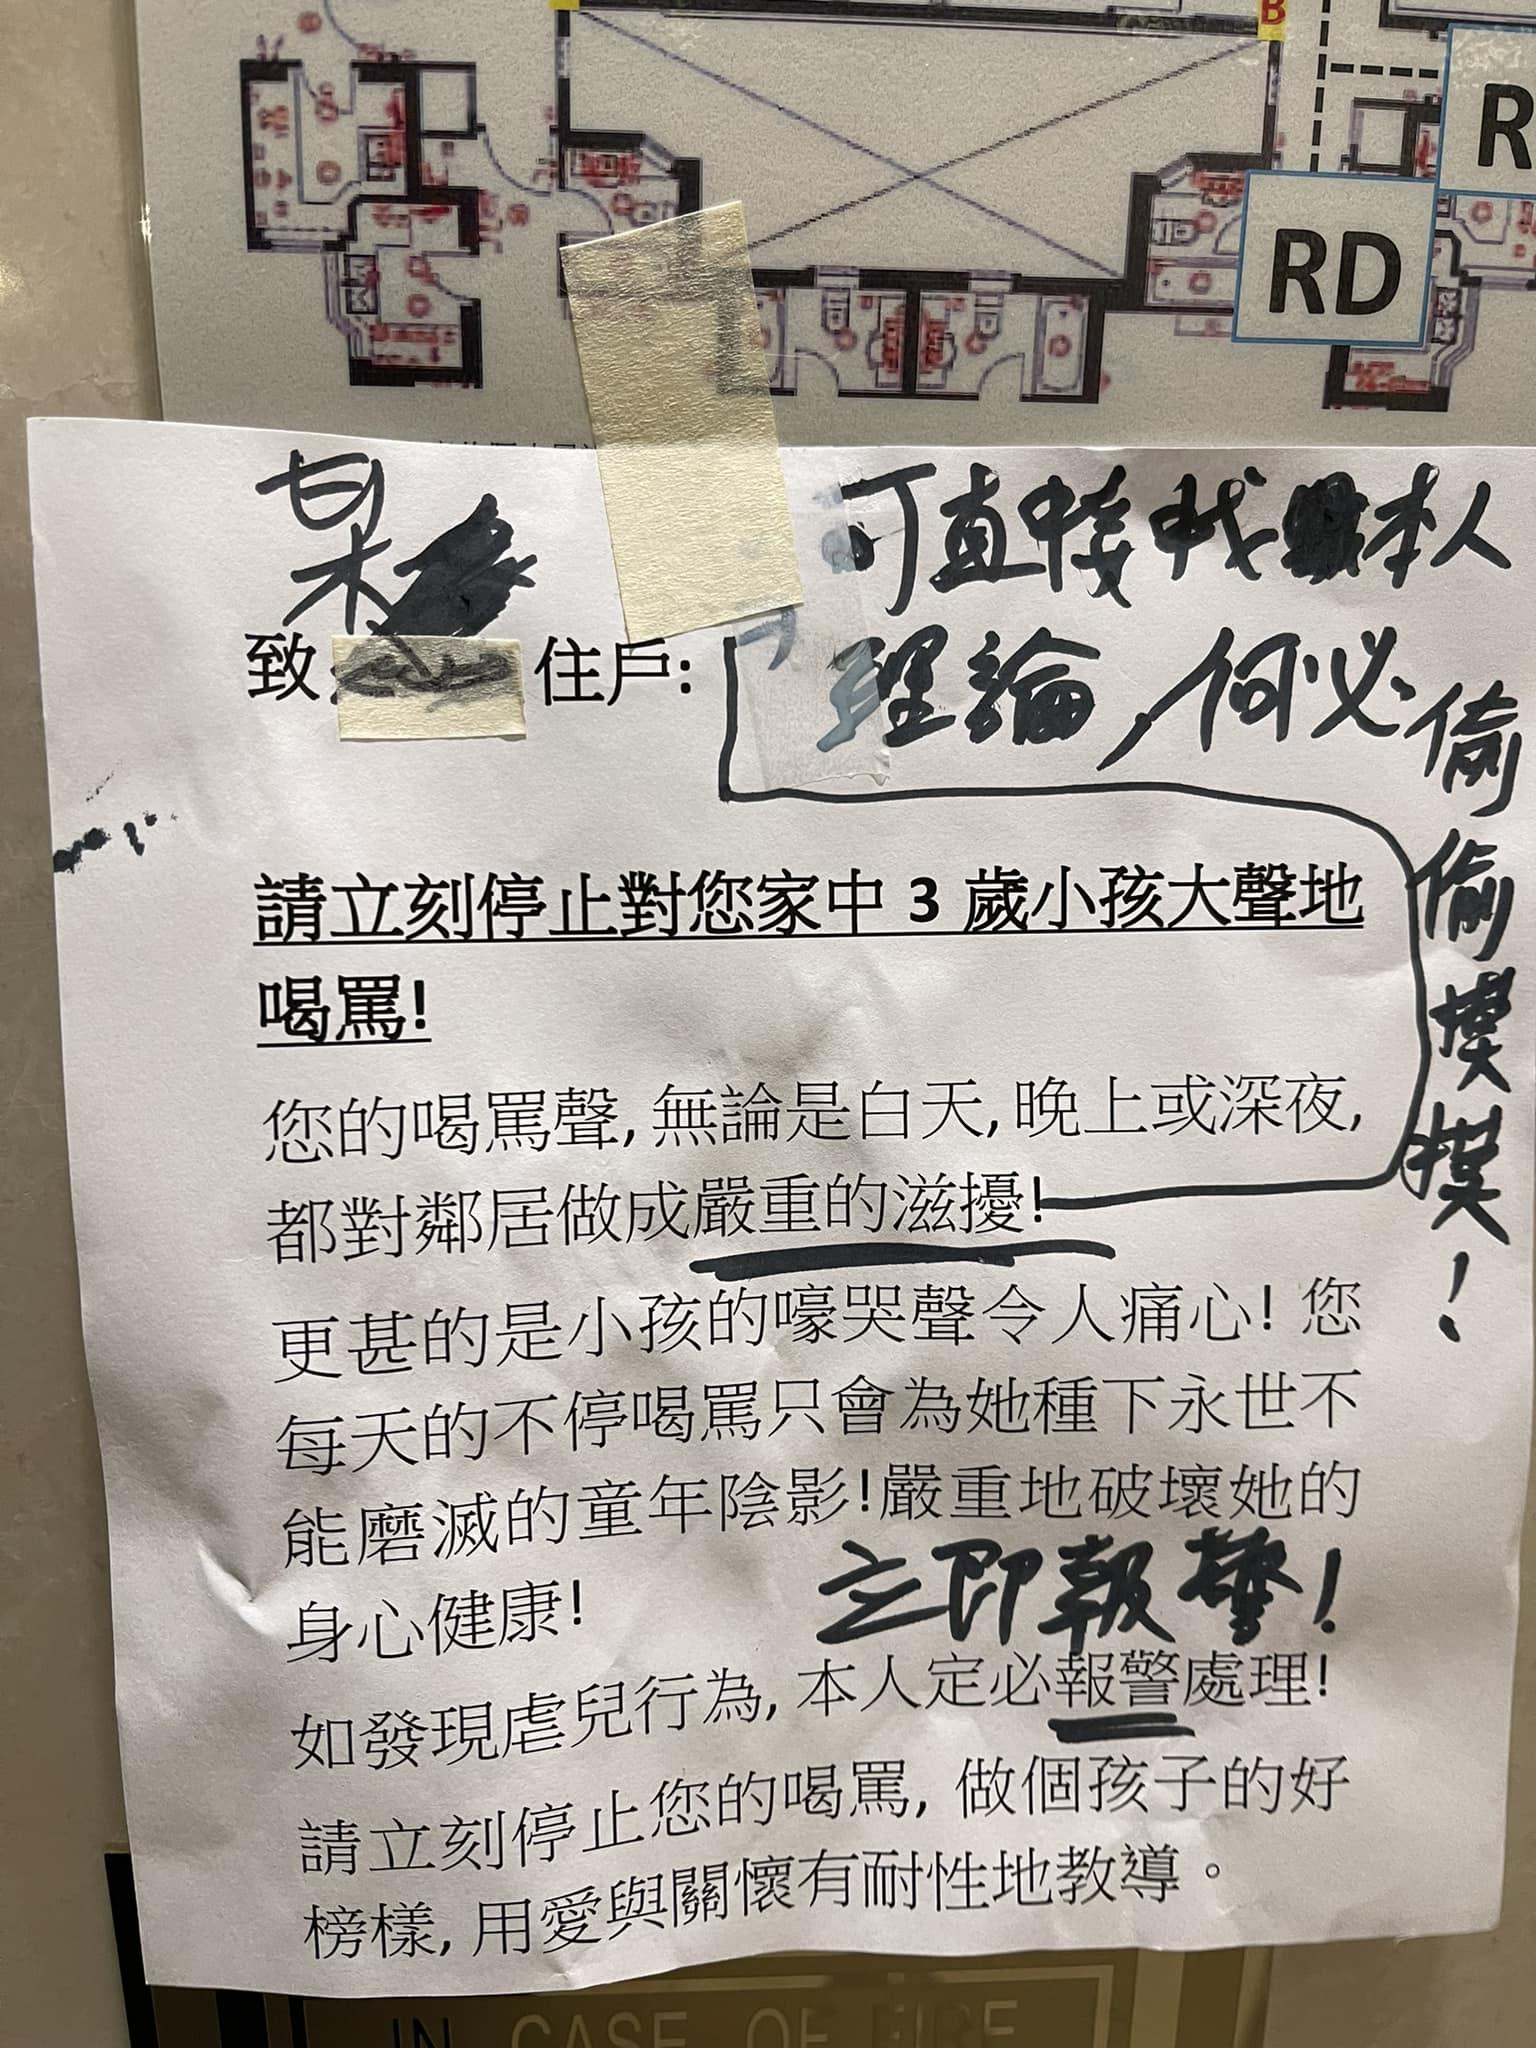 B
R
RD
某
可直接找本人
理論，何必
偷
偷
摸
摸
！
致 住戶:
請立刻停止對您家中 3 歲小孩大聲地
喝罵!
您的喝罵聲, 無論是白天, 晚上或深夜,
都對鄰居做成嚴重的滋擾!
更甚的是小孩的嚎哭聲令人痛心! 您
每天的不停喝罵只會為她種下永世不
能磨滅的童年陰影!嚴重地破壞她的
身心健康!
立即報警!
如發現虐兒行為, 本人定必報警處理!
請立刻停止您的喝罵, 做個孩子的好
榜樣, 用愛與關懷有耐性地教導。
IN CASE OF FIRE